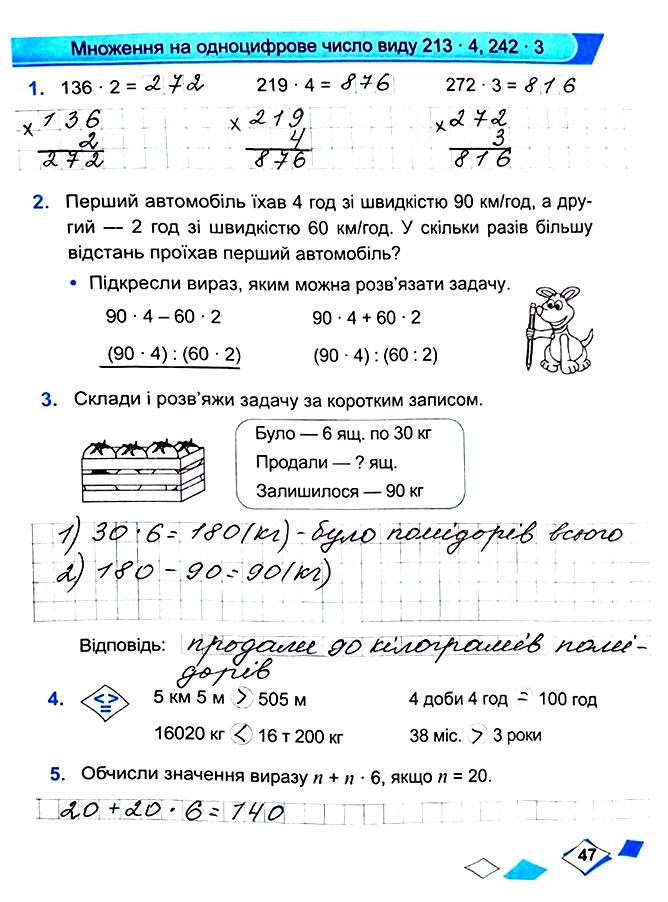 Множення на одноцифрове число виду 213 · 4, 242 · 3
1. 136 · 2 = 272 219 · 4 = 876 272 · 3 = 816
× 136 × 219 × 272
2 4 3
272 876 816
2. Перший автомобіль їхав 4 год зі швидкістю 90 км/год, а дру-
гий — 2 год зі швидкістю 60 км/год. У скільки разів більшу
відстань проїхав перший автомобіль?
• Підкресли вираз, яким можна розв'язати задачу.
90 · 4 – 60 · 2 90 · 4 + 60 · 2
(90 · 4) : (60 · 2) (90 · 4) : (60 : 2)
3. Склади і розв'яжи задачу за коротким записом.
Було — 6 ящ. по 30 кг
Продали — ? ящ.
Залишилося — 90 кг
1) 30 · 6 = 180 (кг) - було помідорів всього
2) 180 - 90 = 90 (кг)
Відповідь: продали 90 кілограмів помі-
дорів
4. < > = 5 км 5 м > 505 м 4 доби 4 год = 100 год
16020 кг < 16 т 200 кг 38 міс. > 3 роки
5. Обчисли значення виразу n + n · 6, якщо n = 20.
20 + 20 · 6 = 140
47